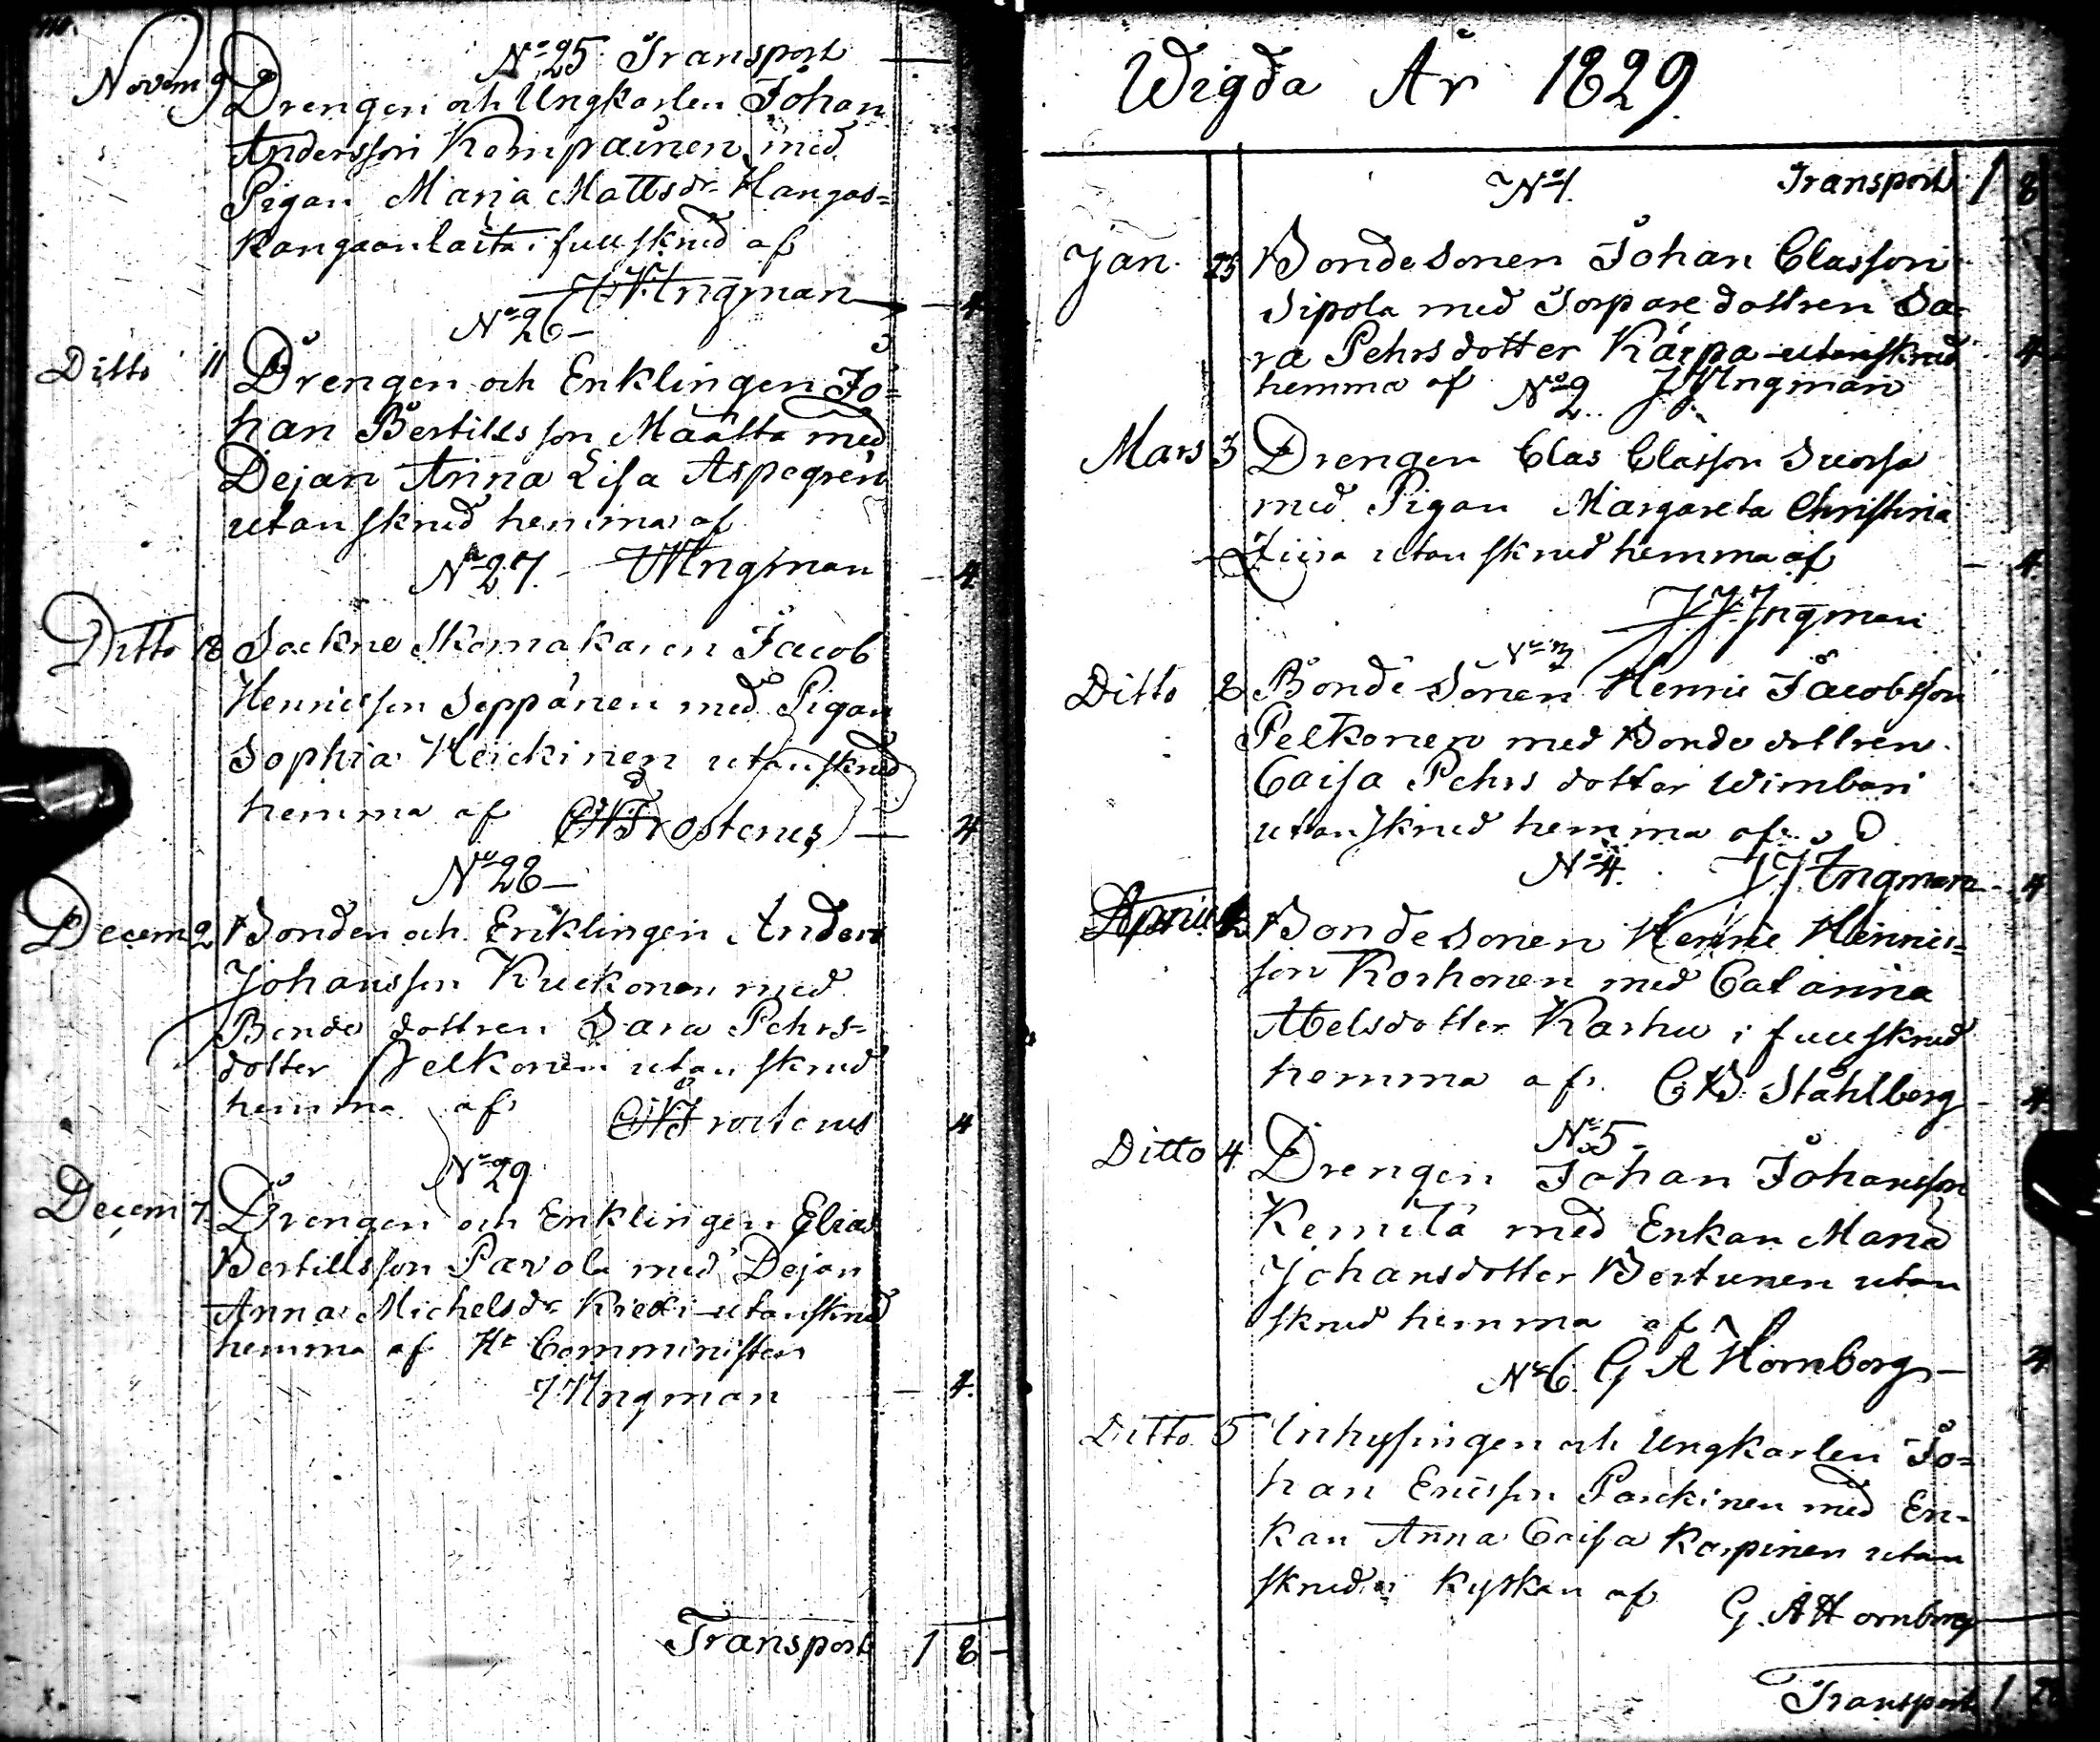 No 25 Transport
Novem 9 Drengen och Ungkarlen Johan
Andersson Kompainen med
Pigan Maria Mattsdr Hangas=
kangaanlaita i full skrud af
JV Ingman 4
No 26
Ditto 11 Drengen och Enklingen Jo=
han Bertilsson Määttä med
Dejan Anna Lisa Aspegren
utan skrud hemma af
No 27. JV Ingman 4
Ditto 18 Sockne Skomakaren Jacob
Henricsson Seppänen med Pigan
Sophia Heickinen utan skrud
hemma af Frosterus 4
No 28
Decem 2 Bonden och Enklingen Anders
Johansson Kuckonen med
Bonde dottren Sara Pehrs=
dotter Pelkonen utan skrud
hemma af Frosterus 4
No 29
Decem 7. Drengen och Enklingen Elias
Bertillsson Pavola med Dejan
Anna Michelsdr Kiexi utan skrud
hemma af Hr Comministern
JV Ingman 4.
Transport 1 8
Wigda År 1829.
No 1. Transport 1 8
Jan. 25 Bondesonen Johan Classon
Sipola med Torpare dottren Sa=
ra Pehrsdotter Kärpa utan skrud 4
hemma af No 2 JV Ingman
Mars 3 Drengen Clas Classon Suorsa
med Pigan Margareta Christina
utan skrud hemma af 4
JV Ingman
No 3
Ditto 8 Bonde Sonen Henric Jacobsson
Pelkonen med Bonde dottren
Caisa Pehrs dotter Wimbari
utan skrud hemma af
No 4. JV Ingman 4
April Bondesonen Henric Henrics=
son Korhonen med Catarina
Abelsdotter Karhu i full skrud
hemma af Ståhlberg 4
No 5
Ditto 4 Drengen Johan Johansson
Kemilä med Enkan Maria
Johansdotter Bertunen utan
skrud hemma af
No 6. G A Hornborg 4
Ditto 5 Inhysingen och Ungkarlen Jo=
han Ericsson Parckinen med En=
kan Anna Caisa Karpinen utan
skrud i kyrkan af
G. A Hornborg
Transport 1